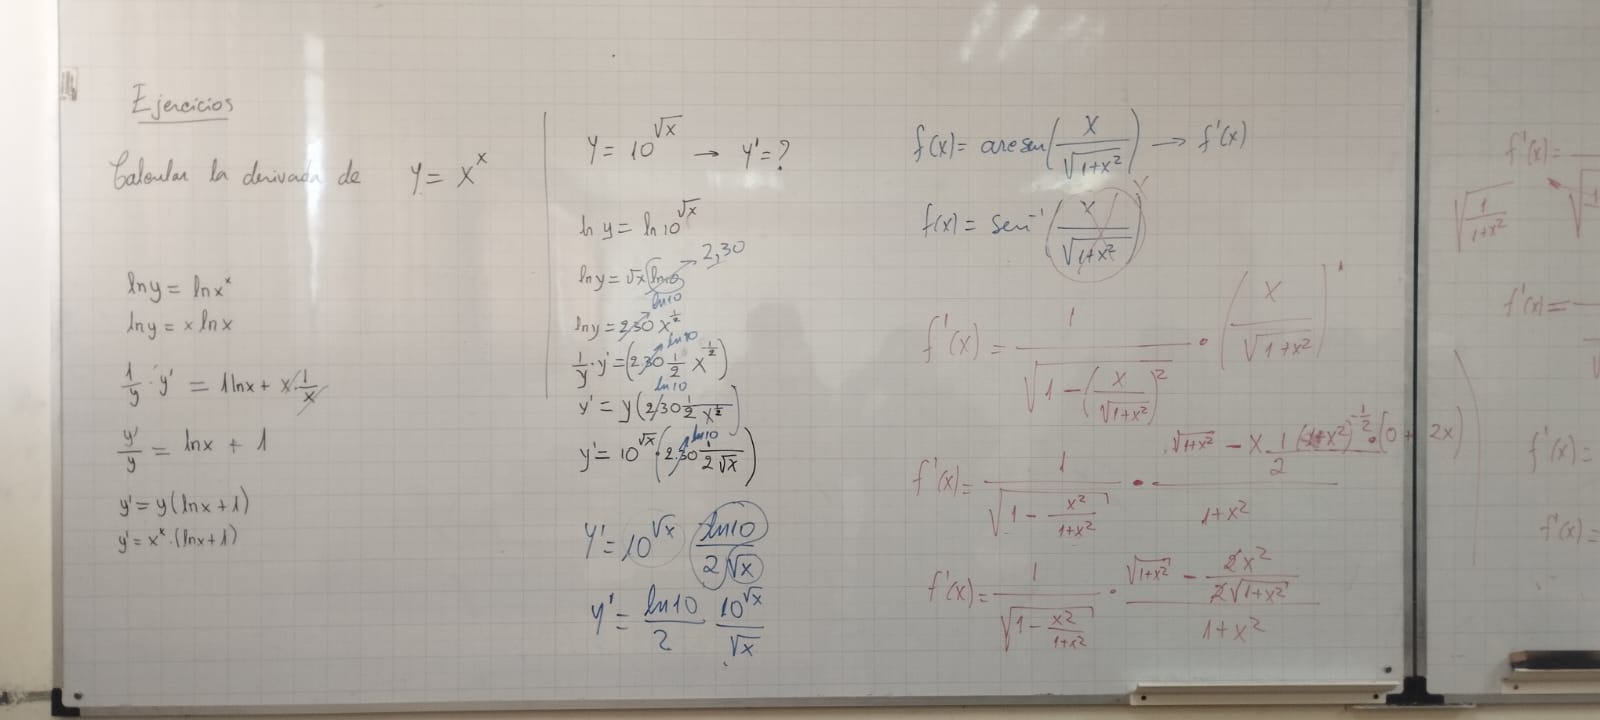 Ejercicios
Calcular la derivada de y = x^x
ln y = ln x^x
ln y = x ln x
1/y · y' = 1 ln x + x · 1/x
y'/y = ln x + 1
y' = y (ln x + 1)
y' = x^x · (ln x + 1)
y = 10^√x → y' = ?
ln y = ln 10^√x
ln y = √x ln 10 → 2,30
ln 10
ln y = 2,30 x^1/2
ln 10
1/y · y' = (2.30 1/2 x^-1/2)
ln 10
y' = y (2,30 1/2 1/x^1/2)
ln 10
y' = 10^√x · (2.30 1/2√x)
y' = 10^√x ln 10/2√x
y' = ln 10/2 10^√x/√x
f(x) = arcsen (x/√1+x²) → f'(x)
f(x) = sen^-1 (x/√1+x²)
f'(x) = 1/√1-(x/√1+x²)² · (x/√1+x²)'
f'(x) = 1/√1-x²/1+x² · √1+x² - x · 1/2 (1+x²)^-1/2 · (0 + 2x)/1+x²
f'(x) = 1/√1-x²/1+x² · √1+x² - 2x²/2√1+x²/1+x²
f'(x) =
√1/1+x²
f'(x) =
f'(x) =
f'(x) =